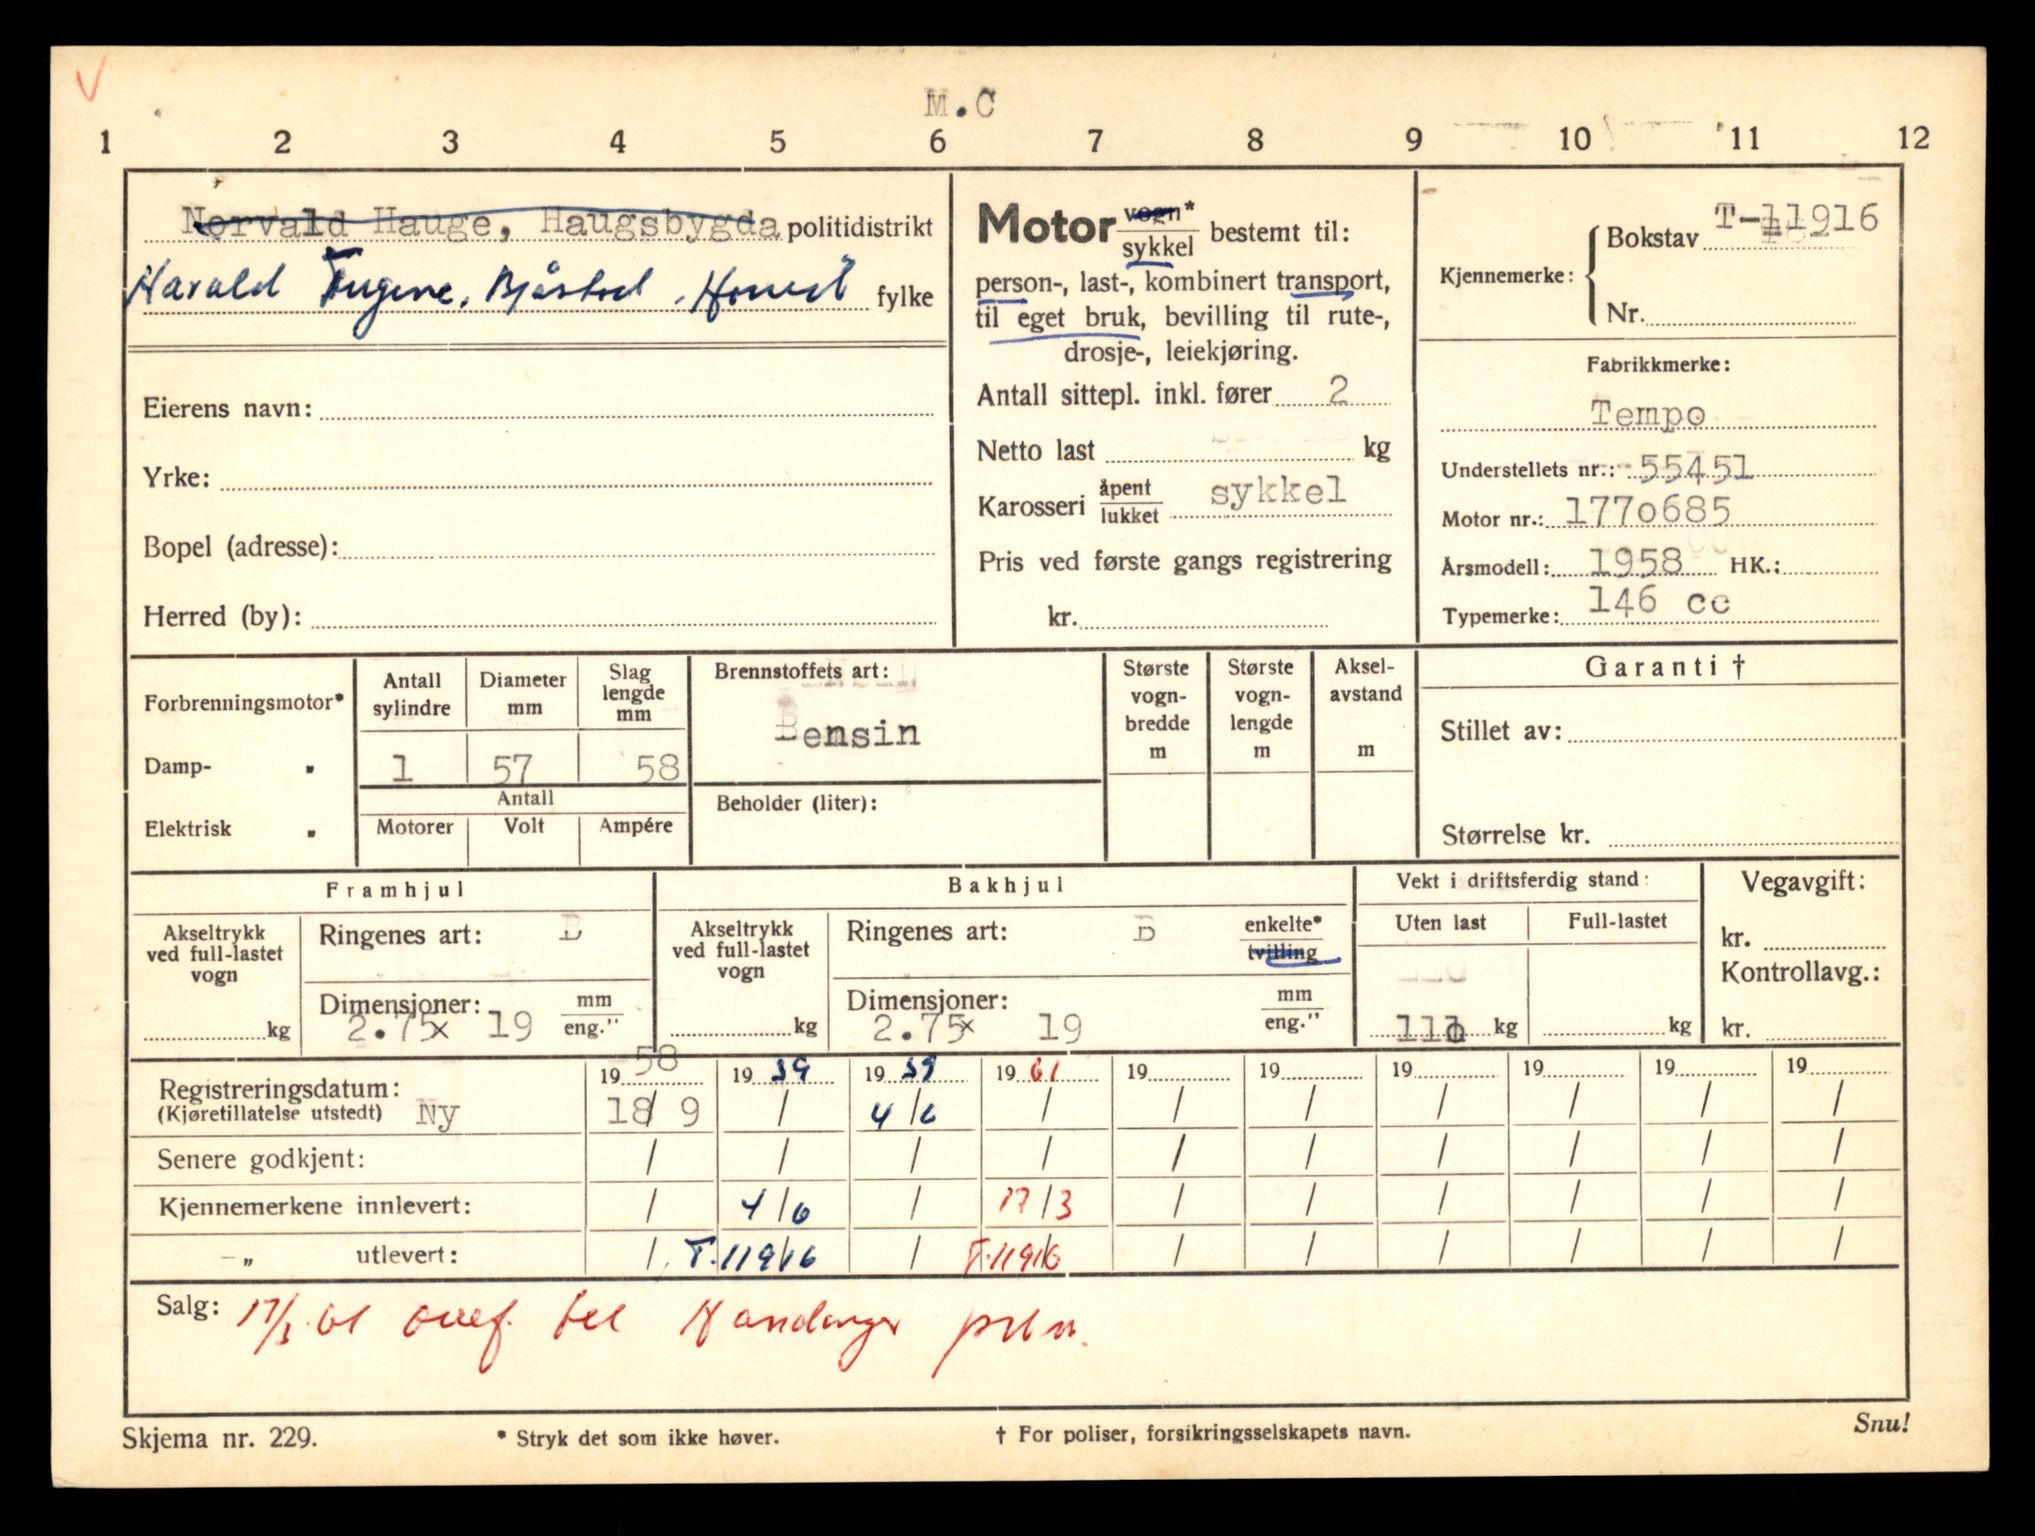 M.C
1 2 3 4 5 6 7 8 9 10 11 12
Norvald Hauge, Haugsbygda politidistrikt
Harald Eugene, Bjåstad, fylke
Eierens navn:
Yrke:
Bopel (adresse):
Herred (by):
Motor vogn* sykkel bestemt til:
person-, last-, kombinert transport,
til eget bruk, bevilling til rute-,
drosje-, leiekjøring.
Antall sittepl. inkl. fører 2
Netto last kg
Karosseri åpent lukket sykkel
Pris ved første gangs registrering
kr.
Kjennemerke:
Bokstav T-11916
Nr.
Fabrikkmerke:
Tempo
Understellets nr.: 55451
Motor nr.: 1770685
Årsmodell: 1958 HK.:
Typemerke: 146 cc
Forbrenningsmotor*
Damp- "
Elektrisk "
Antall sylindre
Diameter mm
Slag lengde mm
1 57 58
Antall
Motorer Volt Ampére
Brennstoffets art:
Bensin
Beholder (liter):
Største vogn- bredde m
Største vogn- lengde m
Aksel- avstand m
Garanti †
Stillet av:
Størrelse kr.
Framhjul
Akseltrykk ved full-lastet vogn
kg
Ringenes art: B
Dimensjoner: mm eng."
2.75x 19
Bakhjul
Akseltrykk ved full-lastet vogn
kg
Ringenes art: B enkelte* tvilling
Dimensjoner: mm eng."
2.75x 19
Vekt i driftsferdig stand:
Uten last Full-lastet
kg kg
Vegavgift:
kr.
Kontrollavg.:
kr.
Registreringsdatum: 19 58 19 59 19 59 19 61 19 19 19 19 19 19
(Kjøretillatelse utstedt) Ny 18/ 9 / 4/6 / / / / / / /
Senere godkjent: / / / / / / / / / /
Kjennemerkene innlevert: / 4/6 / 17/3 / / / / / /
–„ utlevert: / T.11916 / T.11916 / / / / / /
Salg: 17/3.61 overf. til Hardanger
Skjema nr. 229.
* Stryk det som ikke høver.
† For poliser, forsikringsselskapets navn.
Snu!